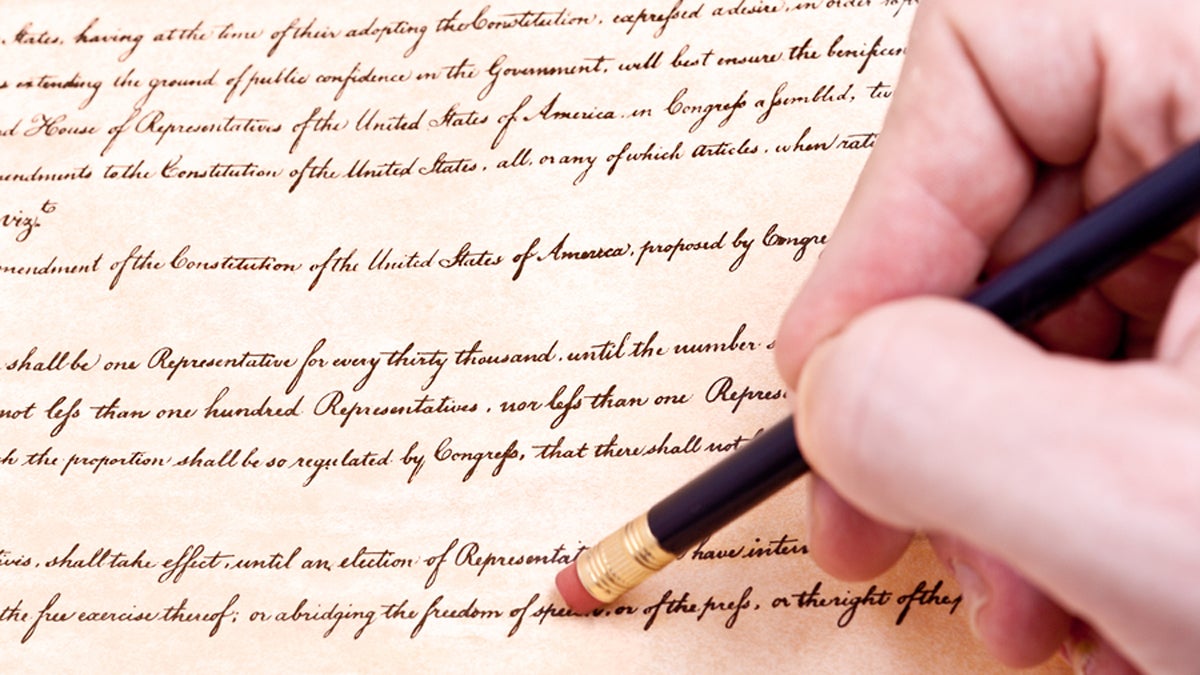 States, having at the time of their adopting the Constitution, expressed a desire, in order
extending the ground of public confidence in the Government, will best ensure the benificen
d House of Representatives of the United States of America in Congress assembled, tw
endments to the Constitution of the United States, all, or any of which articles, when rati
vizt
mendment of the Constitution of the United States of America, proposed by Congre
shall be one Representative for every thirty thousand, until the number
not less than one hundred Representatives, nor less than one Repres
h the proportion shall be so regulated by Congress, that there shall not
shall take effect, until an election of Representat have interv
the free exercise thereof; or abridging the freedom of speech, or of the press, or the right of the p